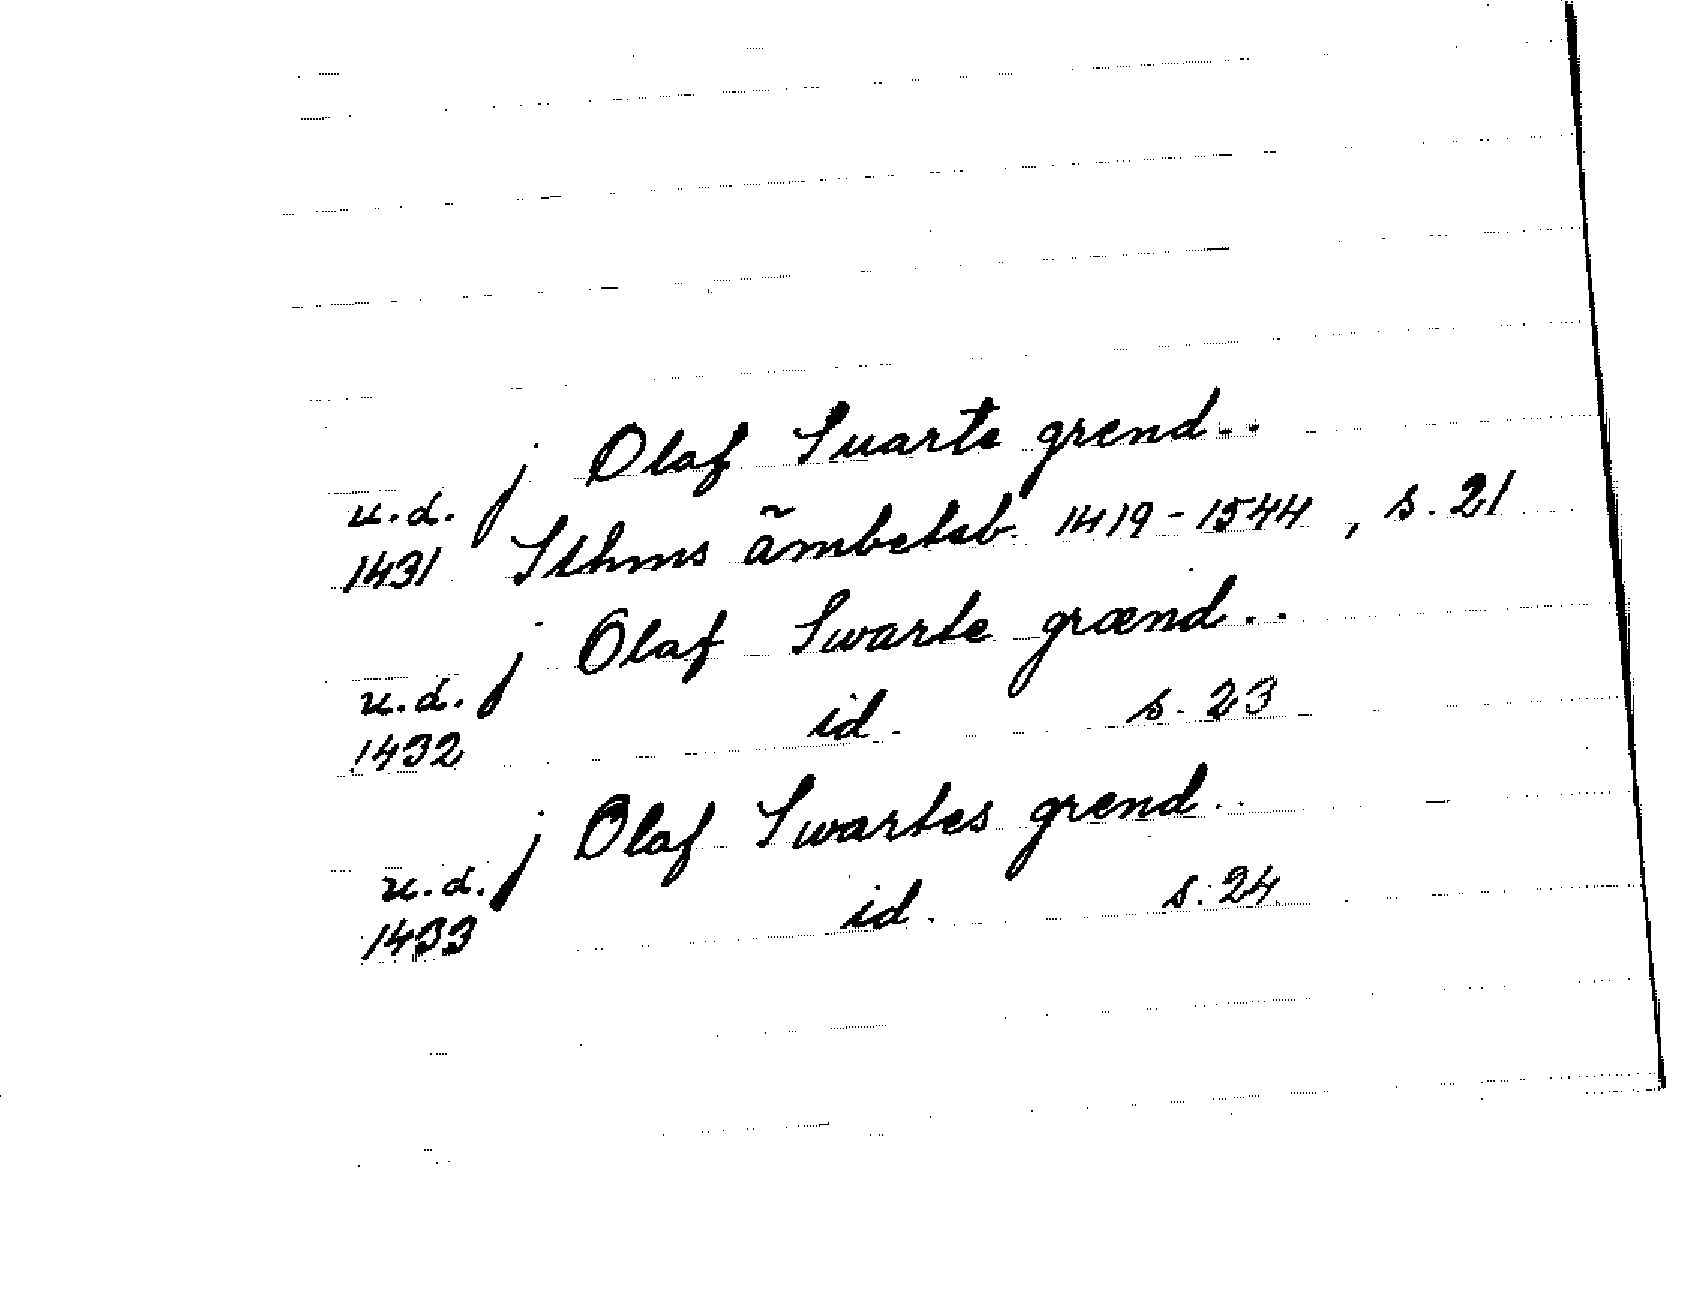 j Olaf Suarte grend..
u.d.
1431 Sthms ämbetsb. 1419-1544, s. 21
j Olaf Swarte grænd..
u.d.
1432 id. s. 23
j Olaf Swartes grend..
u.d.
1433 id. s. 24